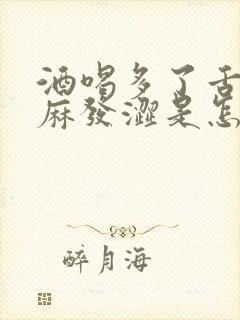 酒喝多了舌
麻發澀是怎
醉月海